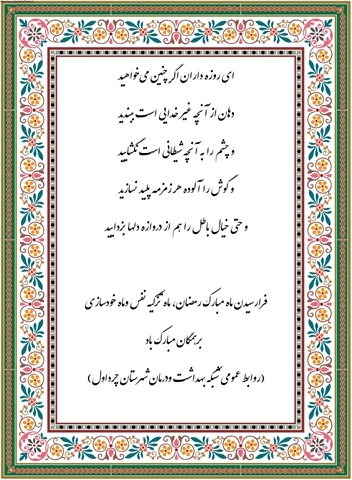 ای روزه داران اگر چنین می خواهید
دهان از آنچه غیر خدایی است ببندید
و چشم را به آنچه شیطانی است نگشایید
و گوش را آلوده هر زمزمه پلید نسازید
و حتی خیال باطل را هم از دروازه دلها بزدایید
فرارسیدن ماه مبارک رمضان، ماه تزکیه نفس و ماه خودسازی
بر همگان مبارک باد
(روابط عمومی شبکه بهداشت و درمان شهرستان چرداول)